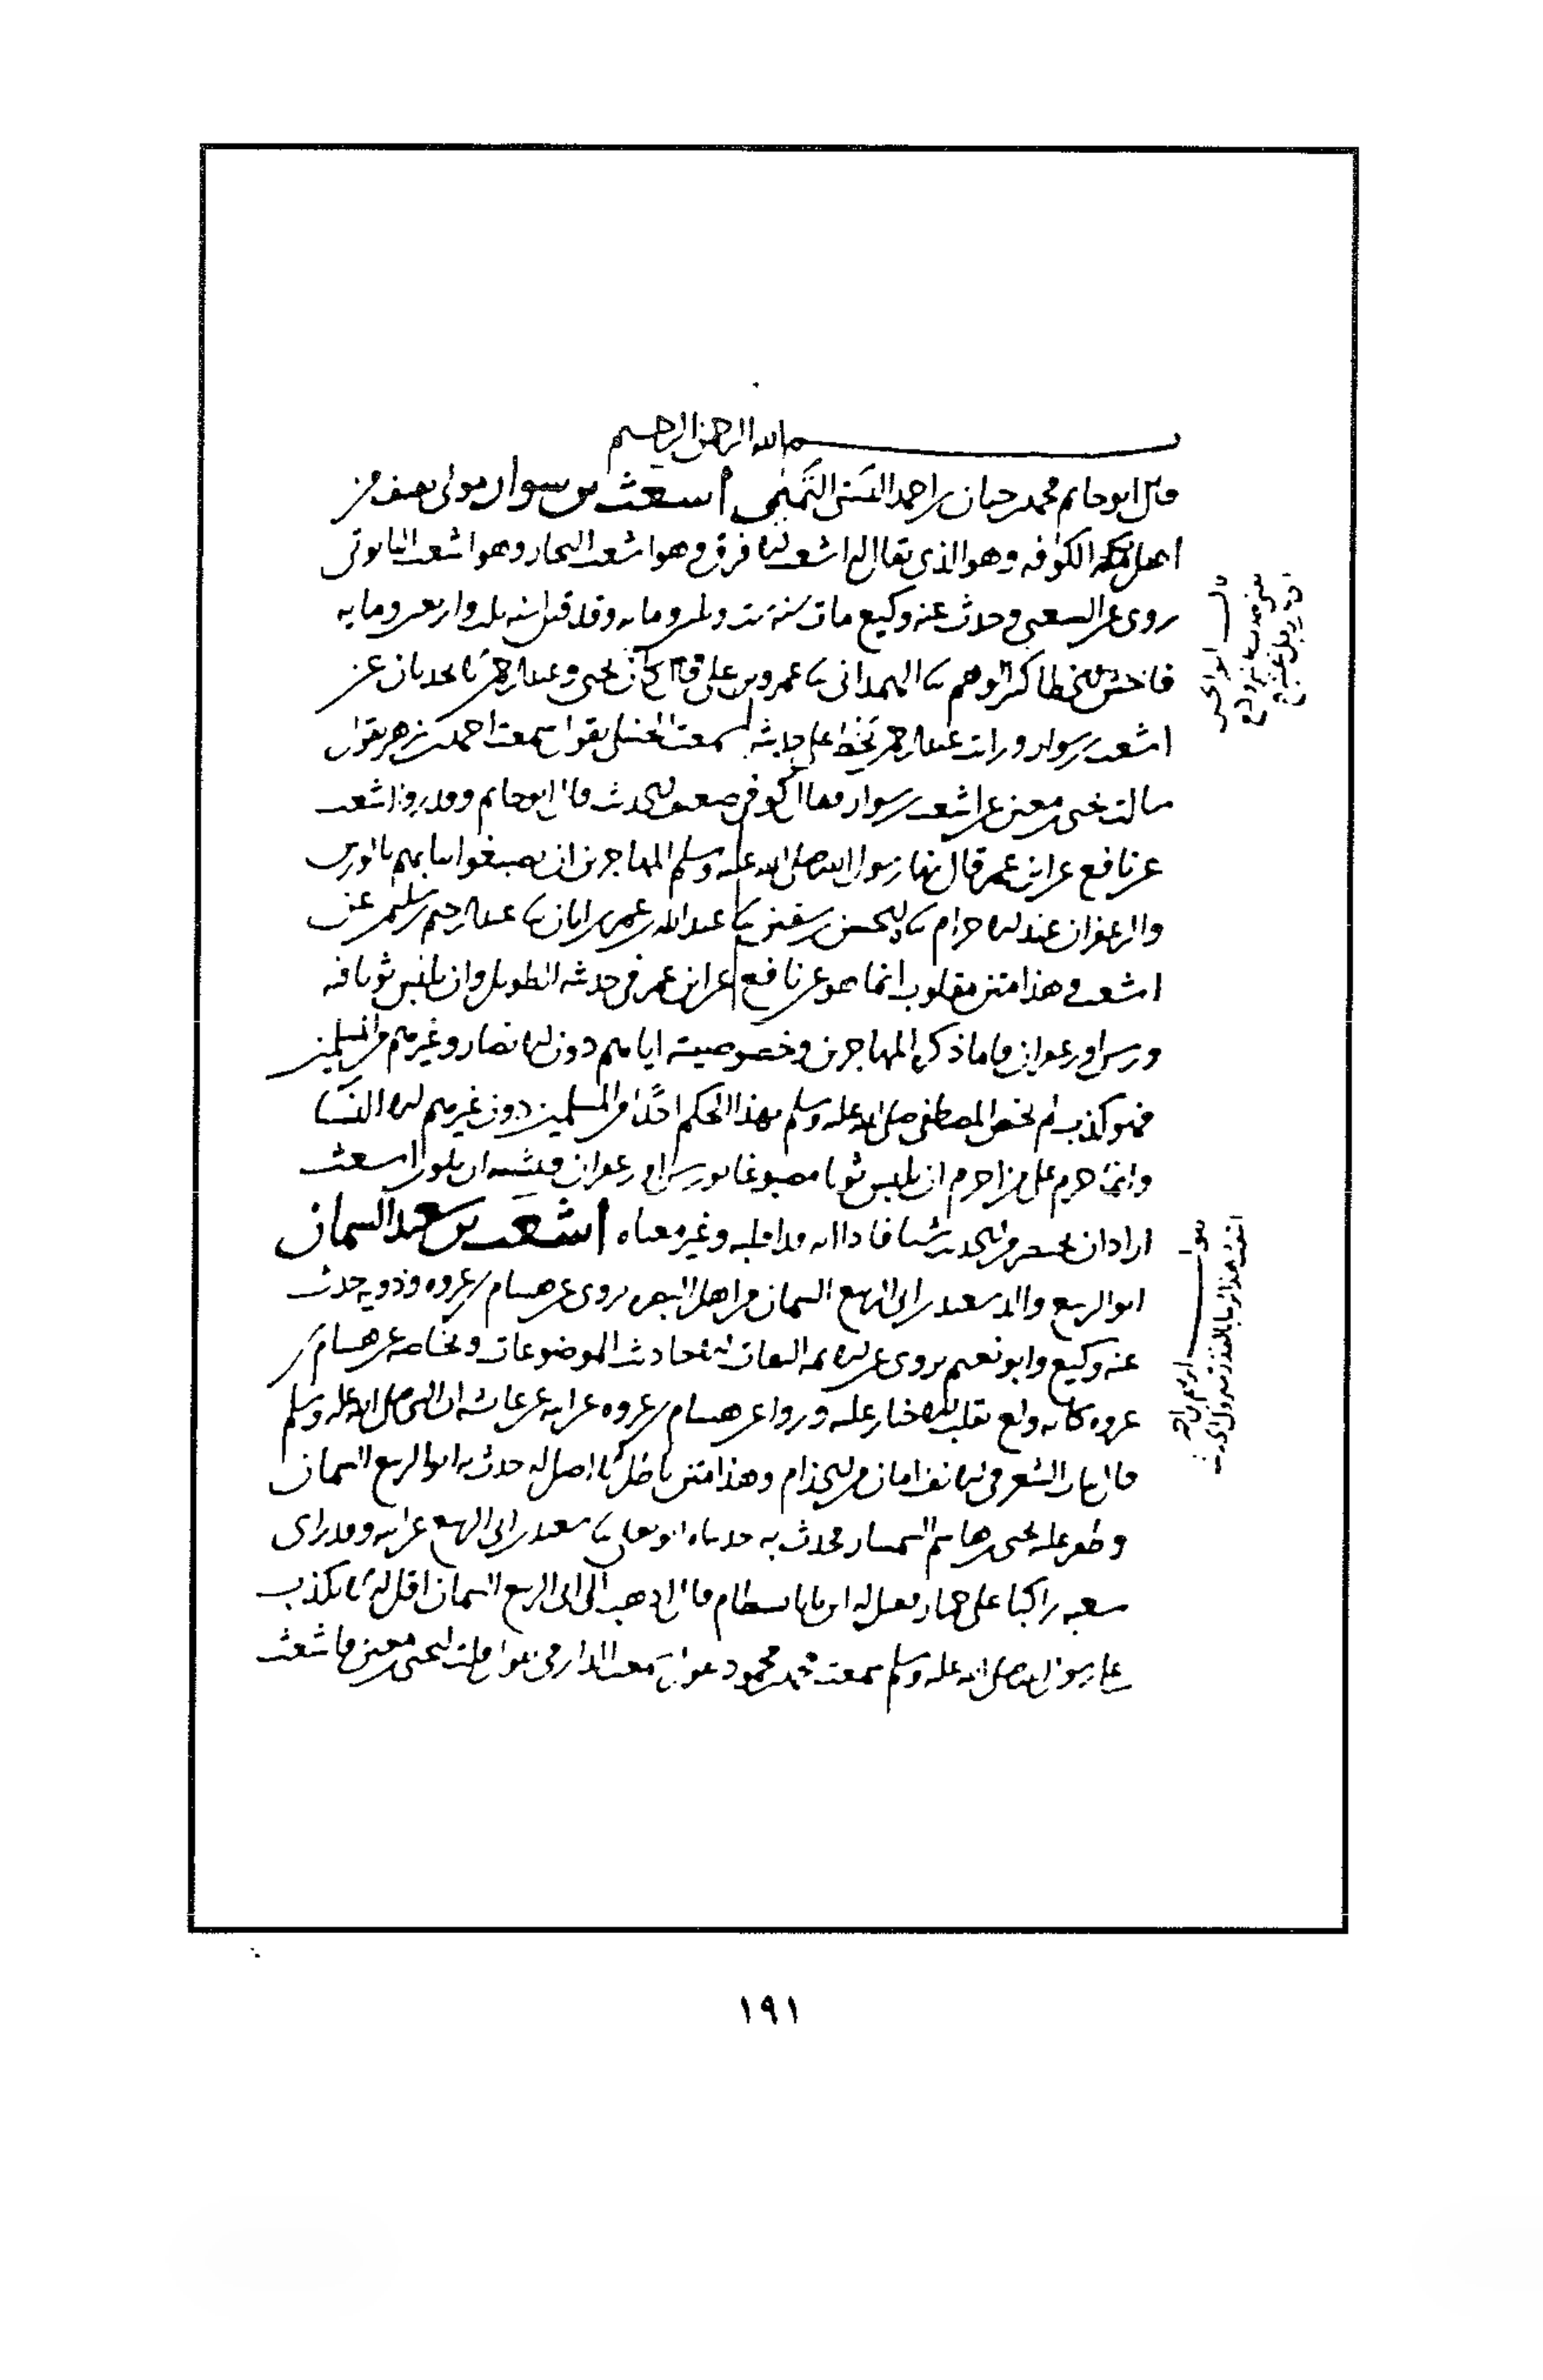 بسم الله الرحمن الرحيم
قال ابو حاتم محمد بن حبان بن احمد البستي التميمي اشعث بن سوار مولى ثقيف من
اهل الكوفه وهو الذي يقال له اشعث الافرق وهو اشعث النجار وهو اشعث التابوتي
روى عن الشعبي وحدث عنه وكيع مات سنه ست وثلثين ومايه وقد قيل سنه ثلث واربعين ومايه
فاحش الخطا كثير الوهم ثنا الهمداني ثنا عمرو بن علي قال كان يحيى وعبد الرحمن لا يحدثان عن
اشعث بن سوار ورايت عبد الرحمن يخط على حديثه سمعت الحنبلي يقول سمعت احمد بن زهير يقول
سالت يحيى بن معين عن اشعث بن سوار فقال كوفي ضعيف الحديث قال ابو حاتم وقد روى اشعث
عن نافع عن ابن عمر قال نها رسول الله صلى الله عليه وسلم المهاجرين ان يصبغوا ثيابهم بالورس
والزعفران عند الاحرام ثنا الحسن بن سفين ثنا عبد الله بن عمر بن ابان ثنا عبد الرحيم بن سليمن عن
اشعث وهذا متن مقلوب انما هو عن نافع عن ابن عمر في حديثه الطويل وان يلبس ثوبا فيه
ورس او زعفران فاما ذكر المهاجرين وخصوصيته اياهم دون الانصار وغيرهم من المسلمين
فهو كذب لم يخص المصطفى صلى الله عليه وسلم بهذا الحكم احدا من المسلمين دون غيرهم الا النسا
وانما حرم على من احرم ان يلبس ثوبا مصبوغا بورس او زعفران فيشبه ان يكون اشعث
اراد ان يختصر من الحديث شيا فاذا انه قد قلبه وغير معناه اشعث بن سعيد السمان
ابو الربيع والد سعيد بن ابي الربيع السمان من اهل البصره يروي عن هشام بن عروه وذويه حدث
عنه وكيع وابو نعيم يروي عن الايمه الثقات الاحاديث الموضوعات وبخاصه عن هشام بن
عروه كانه ولع بقلب الاخبار عليه وروا عن هشام بن عروه عن ابيه عن عايشه ان النبي صلى الله عليه وسلم
قال نبات الشعر في الانف امان من الجذام وهذا متن باطل لا اصل له حدث به ابو الربيع السمان
وظفر عليه يحيى بن هاشم السمسار فحدث به حدثناه ابو يعلى ثنا سعيد بن ابي الربيع عن ابيه وقد راى
شعبه راكبا على حمار فقيل له اين يا ابا بسطام قال اذهب الى ابي الربيع السمان اقل له لا يكذب
على رسول الله صلى الله عليه وسلم سمعت محمد بن محمود يقول سمعت الدارمي يقول قلت ليحيى بن معين فاشعث
١٩١